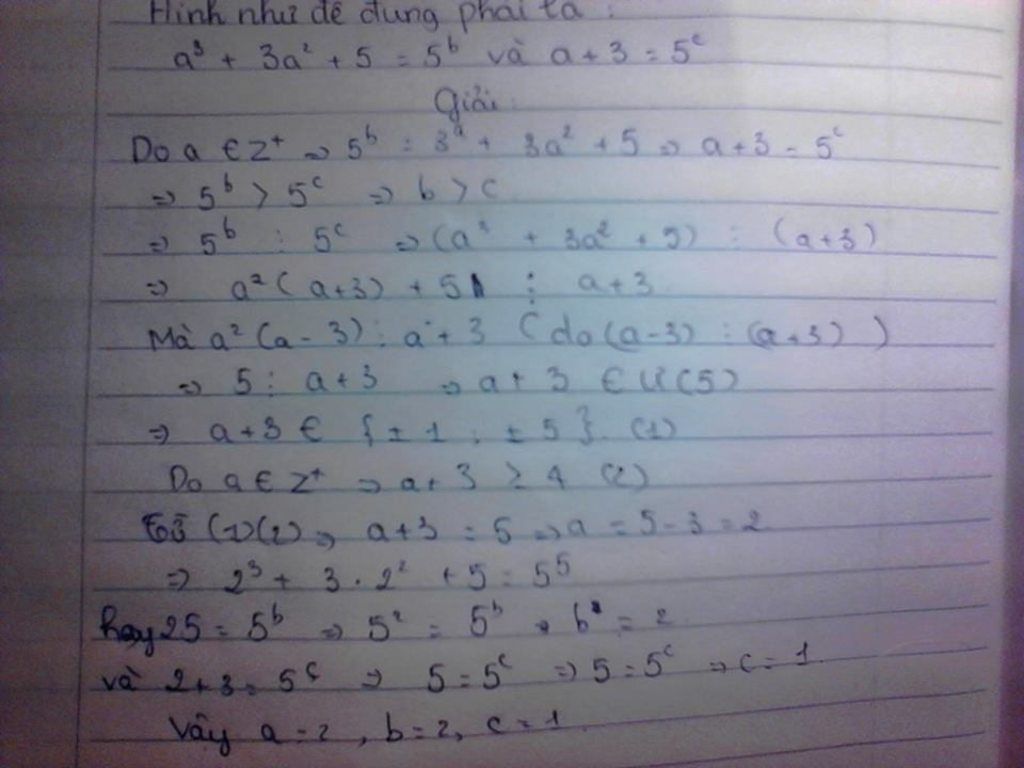 Hình như đề đúng phải là :
a³ + 3a² + 5 = 5ᵇ và a + 3 = 5ᶜ
Giải
Do a ∈ Z⁺ => 5ᵇ = 3ᵃ + 3a² + 5 => a + 3 = 5ᶜ
=> 5ᵇ > 5ᶜ => b > c
=> 5ᵇ ⋮ 5ᶜ => (a² + 3a² + 5) ⋮ (a+3)
=> a² (a+3) + 5 ⋮ a+3
Mà a² (a-3) ⋮ a+3 (do (a-3) ⋮ (a+3) )
=> 5 ⋮ a+3 => a+3 ∈ Ư(5)
=> a+3 ∈ {±1 ; ±5}. (1)
Do a ∈ Z⁺ => a+3 ≥ 4 (2)
Từ (1)(2) => a+3 = 5 => a = 5-3 = 2
=> 2³ + 3 . 2² + 5 = 5⁵
hay 25 = 5ᵇ => 5² = 5ᵇ => b = 2
và 2+3 = 5ᶜ => 5 = 5ᶜ => 5 = 5ᶜ => c = 1
Vậy a = 2 , b = 2, c = 1